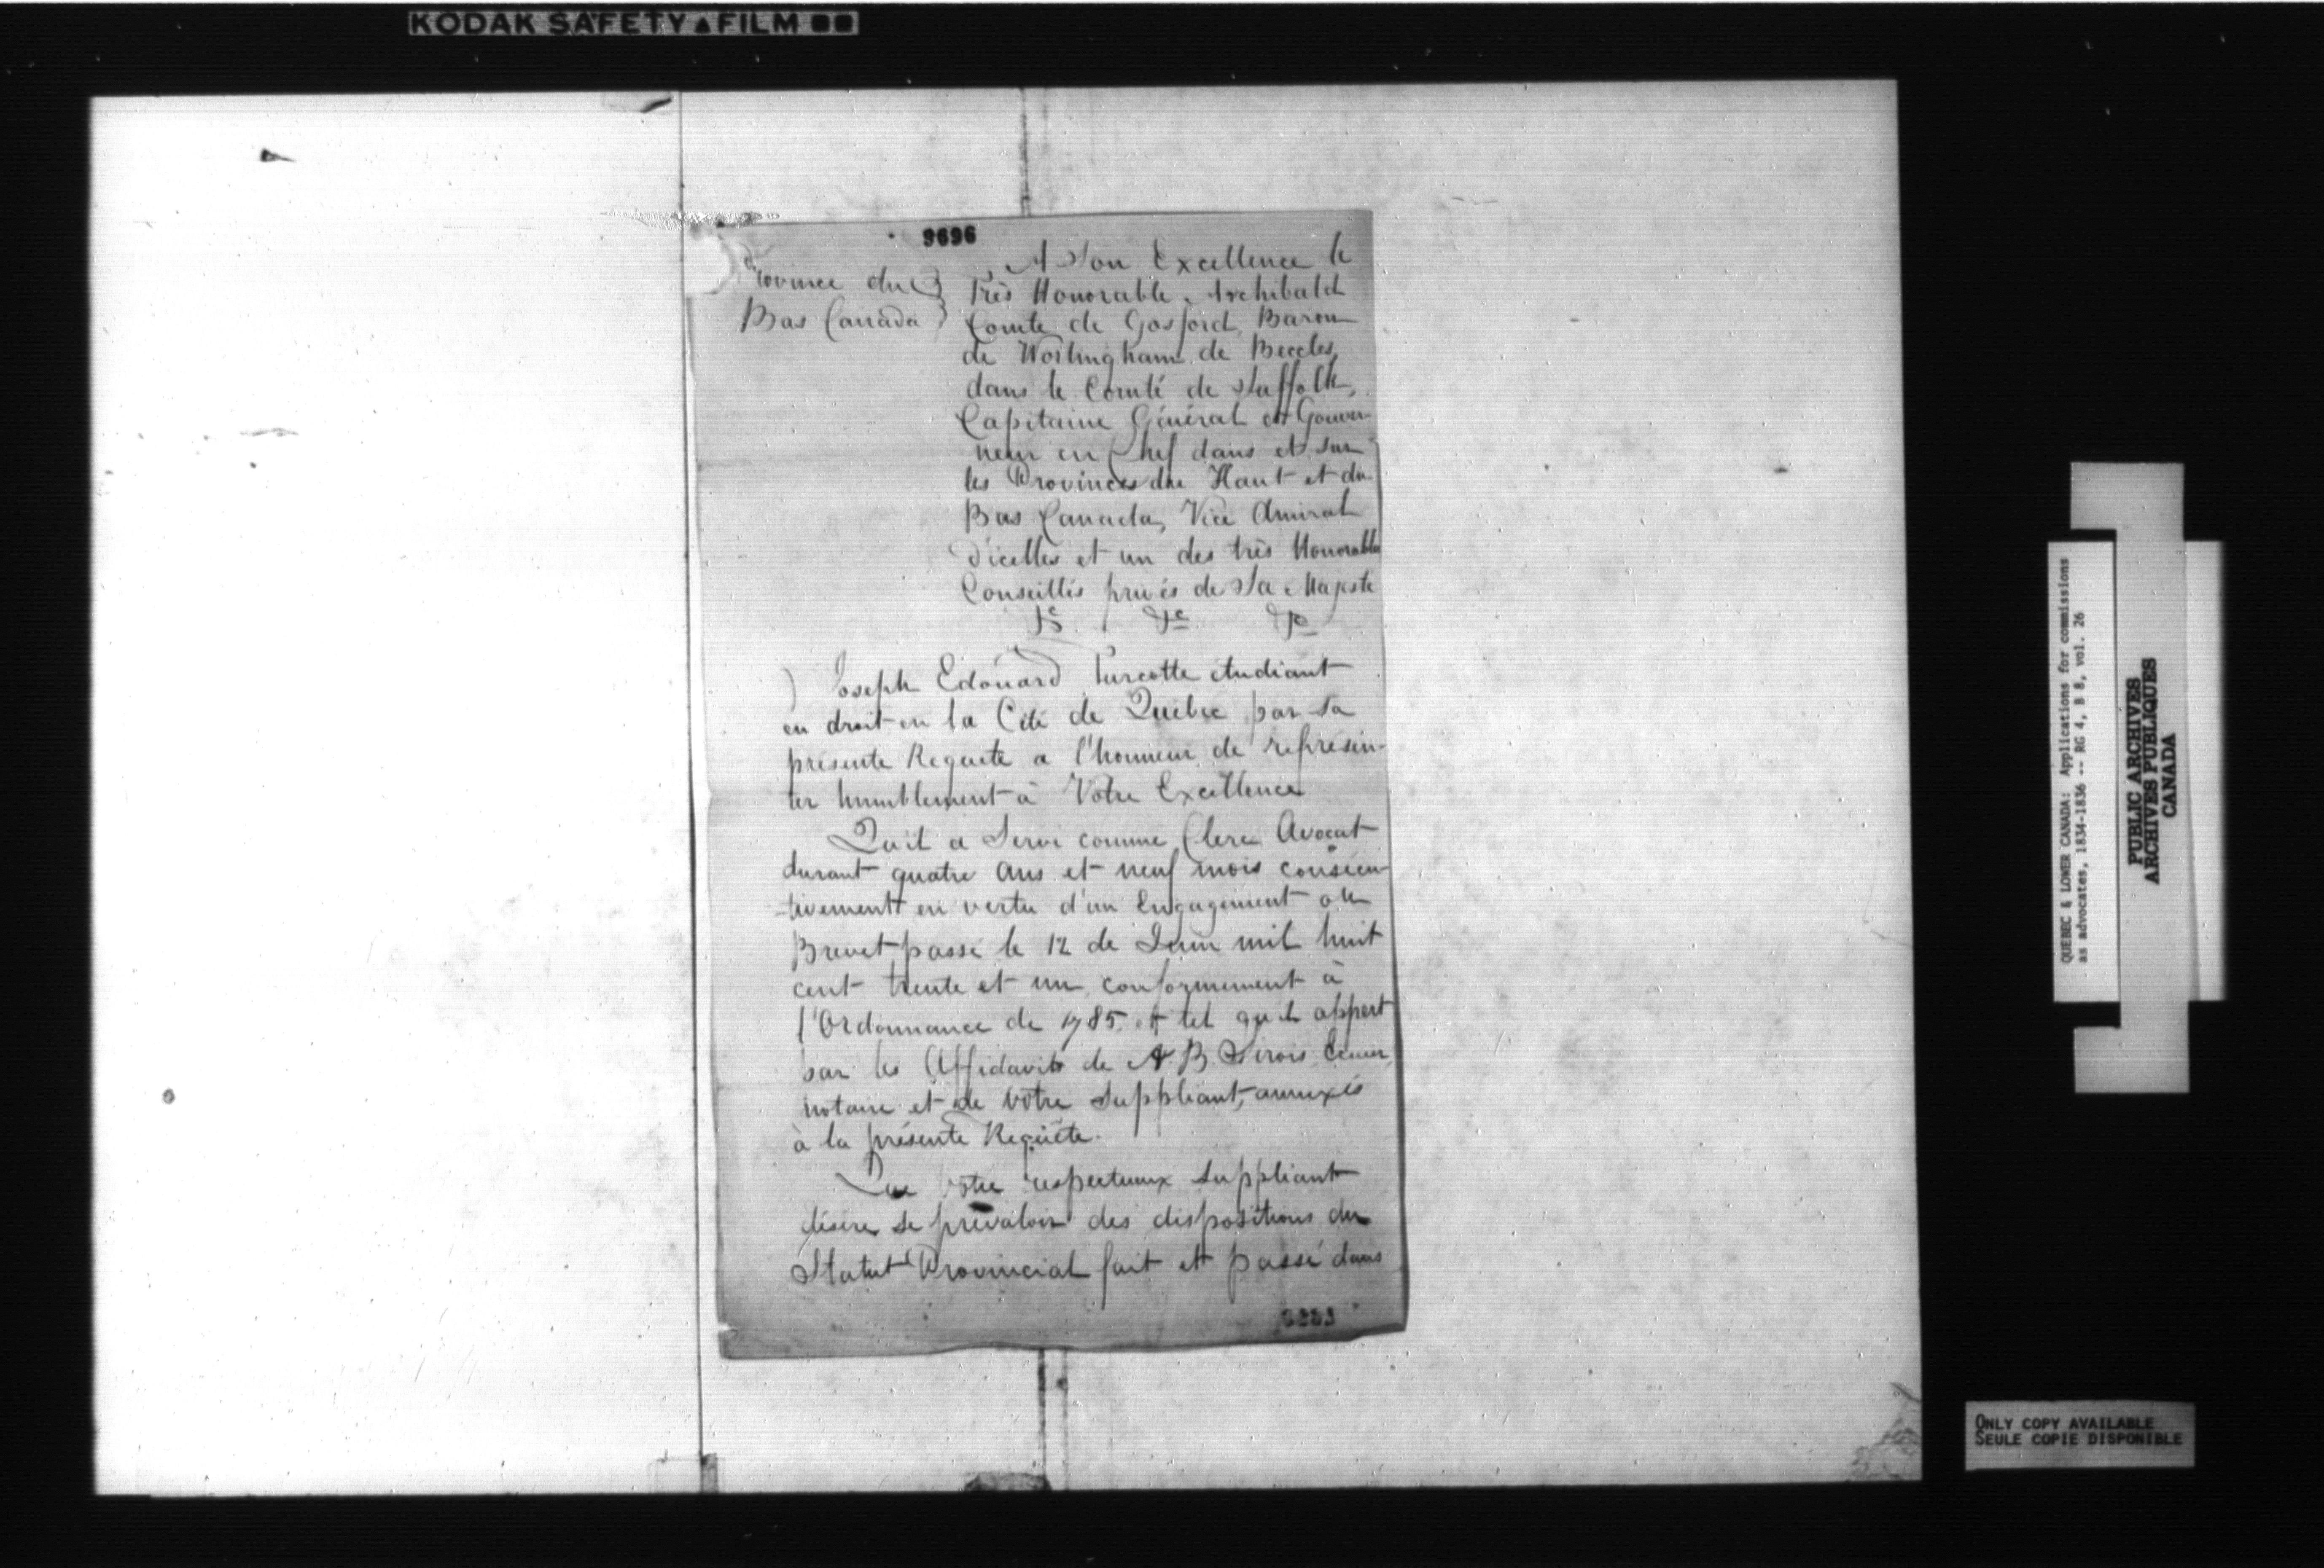 KODAK SAFETY FILM
9696
Province du
Bas Canada
A Son Excellence le
Très Honorable Archibald
Comte de Gosford, Baron
de Worlingham de Beccles,
dans le Comté de Suffolk,
Capitaine Général et Gouver-
neur en Chef dans et sur
les Provinces du Haut et du
Bas Canada, Vice Amiral
d'icelles et un des très Honorables
Conseillés privés de Sa Majesté
&c &c &c
Joseph Edouard Turcotte étudiant
en droit en la Cité de Québec par sa
présente Requête a l'honneur de représen-
ter humblement à Votre Excellence
Qu'il a servi comme Clerc Avocat
durant quatre ans et neuf mois consécu-
-tivement en vertu d'un Engagement ou
Brevet passé le 12 de Juin mil huit
cent trente et un conformement à
l'Ordonnance de 1785 et tel qu'il appert
par les Affidavits de A. B. Sirois Ecuier,
notaire et de votre Suppliant, annexés
à la présente Requête.
Que votre respectueux Suppliant
désire se prévaloir des dispositions du
Statut Provincial fait et passé dans
QUEBEC & LOWER CANADA: Applications for commissions
as advocates, 1834-1836 -- RG 4, B 8, vol. 26
PUBLIC ARCHIVES
ARCHIVES PUBLIQUES
CANADA
ONLY COPY AVAILABLE
SEULE COPIE DISPONIBLE